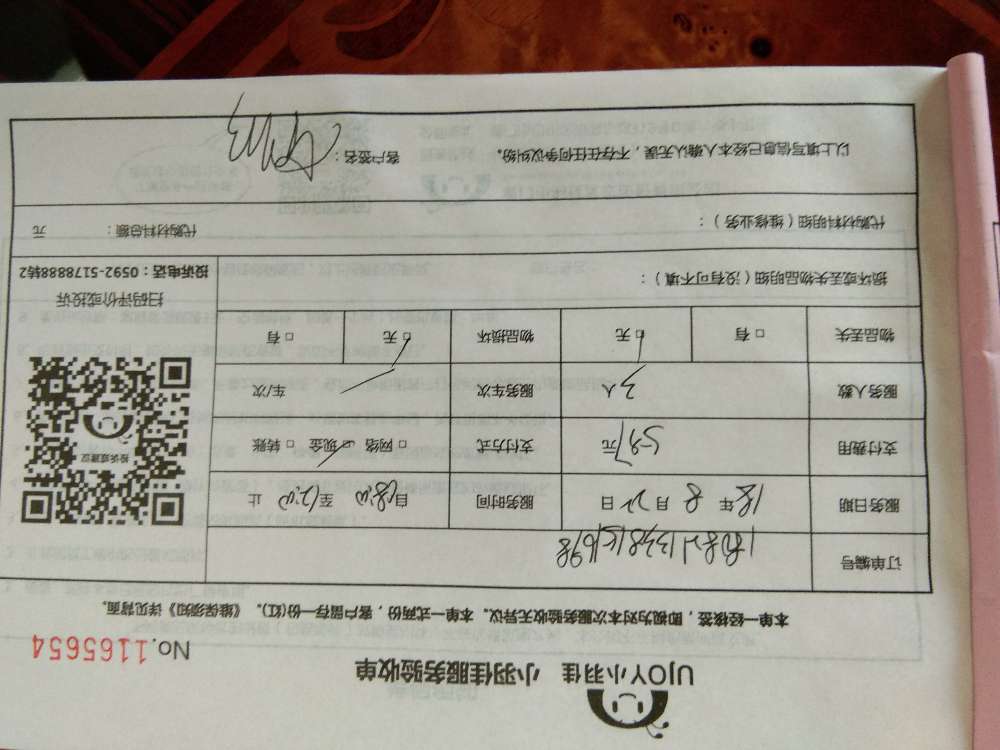 UJOY小羽佳 小羽佳服务验收单
No.1165654
本单一经核签，即视为对本次服务验收无异议。本单一式两份，客户留存一份(红)。《维保须知》详见背面。
订单编号
服务日期 18年8月22日 服务时间 自 至 止
支付费用 597元 支付方式 □网络 □现金 □转账
服务人数 3人 服务车次 车/次
物品丢失 □有 □无 物品损坏 □无 □有
投诉或建议
扫码评价或投诉
投诉电话：0592-5178888转2
损坏或丢失物品明细（没有可不填）：
代购材料明细（维修业务）： 代购材料总额： 元
以上填写信息已经本人确认无误，不存在任何争议纠纷。 客户签名：